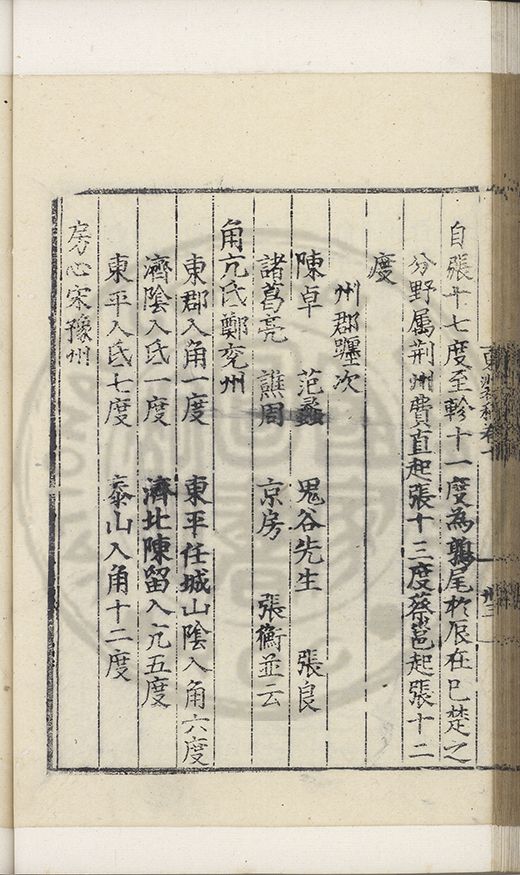 自張十七度至軫十一度為鶉尾於辰在巳楚之
分野属荆州費直起張十三度蔡邕起張十二
度
州郡躔次
陳卓 范蠡 鬼谷先生 張良
諸葛亮 譙周 京房 張衡並云
角亢氐鄭兖州
東郡入角一度 東平任城山陰入角六度
濟陰入氐一度 濟北陳留入亢五度
東平入氐七度 泰山入角十二度
房心宋豫州